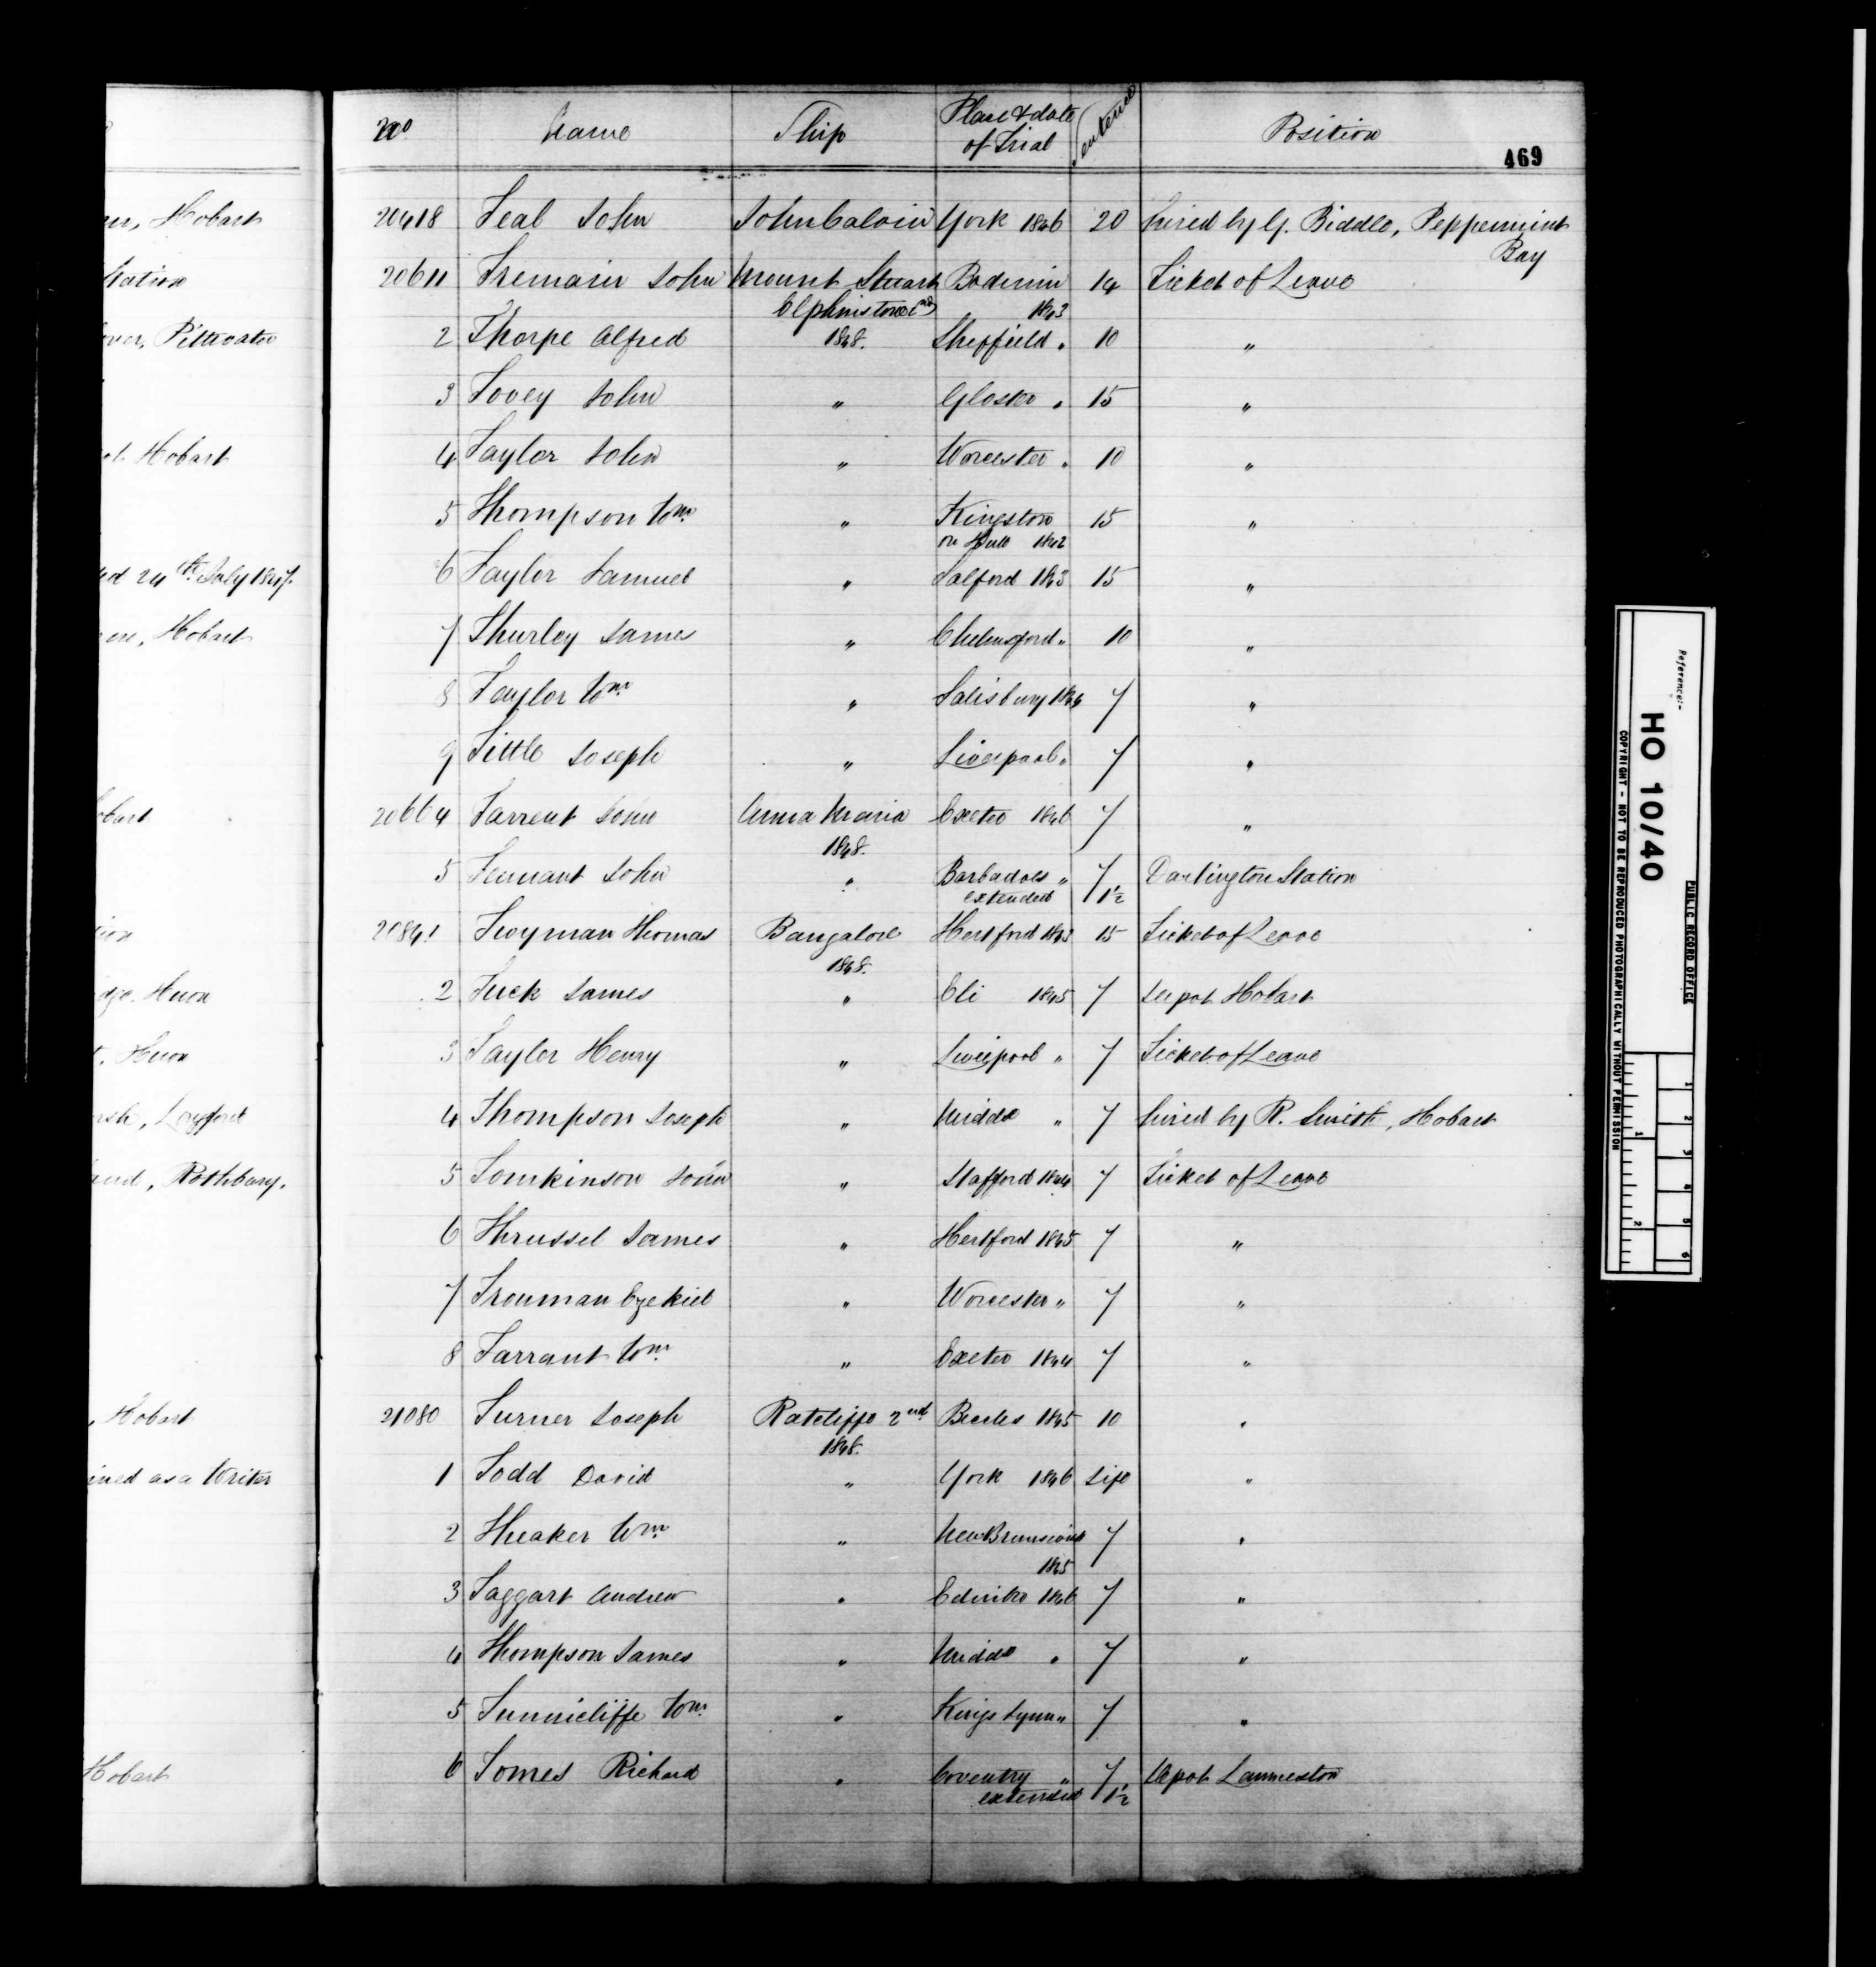 No Name Ship Place & date of Trial Sentence Position
469
20418 Teal John John Calvin York 1846 20 hired by G. Biddle, Peppermint Bay
20611 Tremain John Mount Stuart Elphinstone 2nd 1848. Bodmin 1843 14 Ticket of Leave
2 Thorpe Alfred Sheffield " 10 "
3 Tovey John " Gloster " 15 "
4 Taylor John " Worcester " 10 "
5 Thompson Wm. " Kingston on Hull 1842 15 "
6 Taylor Samuel " Salford 1843 15 "
7 Thurley James " Chelmsford " 10 "
8 Taylor Wm " Salisbury 1844 7 "
9 Tittle Joseph " Liverpool " 7 "
20664 Tarrent John Anna Maria 1848. Exeter 1846 7 "
5 Tennant John " Barbadoes " extended 7 1½ Darlington Station
20841 Twyman Thomas Bangalore 1848. Hertford 1843 15 Ticket of Leave
2 Tuck James " Eli 1845 7 Depot Hobart
3 Taylor Henry " Liverpool " 7 Ticket of Leave
4 Thompson Joseph " Middx " 7 hired by R. Smith, Hobart
5 Tomkinson John " Stafford 1844 7 Ticket of Leave
6 Thrussel James " Hertford 1845 7 "
7 Trouman Ezekiel " Worcester " 7 "
8 Tarrant Wm. " Exeter 1844 7 "
21080 Turner Joseph Ratcliffe 2nd 1848. Beccles 1845 10 "
1 Todd David " York 1846 Life "
2 Theaker Wm. " New Brunswick 1845 7 "
3 Taggart Andrew " Edinbro 1846 7 "
4 Thompson James " Middx " 7 "
5 Tunnicliffe Wm. " Kings Lynn " 7 "
6 Tomes Richard " Coventry " extended 7 1½ Depot Launceston
Hobart
Station
Pittwater
Hobart
24th July 1847.
Hobart
Huon
Huon
Longford
Rothbury.
Hobart
as a Writer
Hobart
Reference:-
HO 10/40
PUBLIC RECORD OFFICE
COPYRIGHT - NOT TO BE REPRODUCED PHOTOGRAPHICALLY WITHOUT PERMISSION
1 2 3 4 5 6
1 2